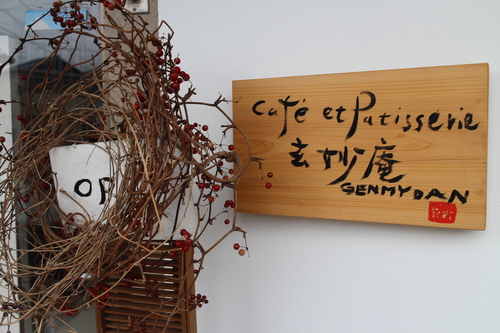 Café et Patisserie
玄妙庵
GENMYOAN
OP